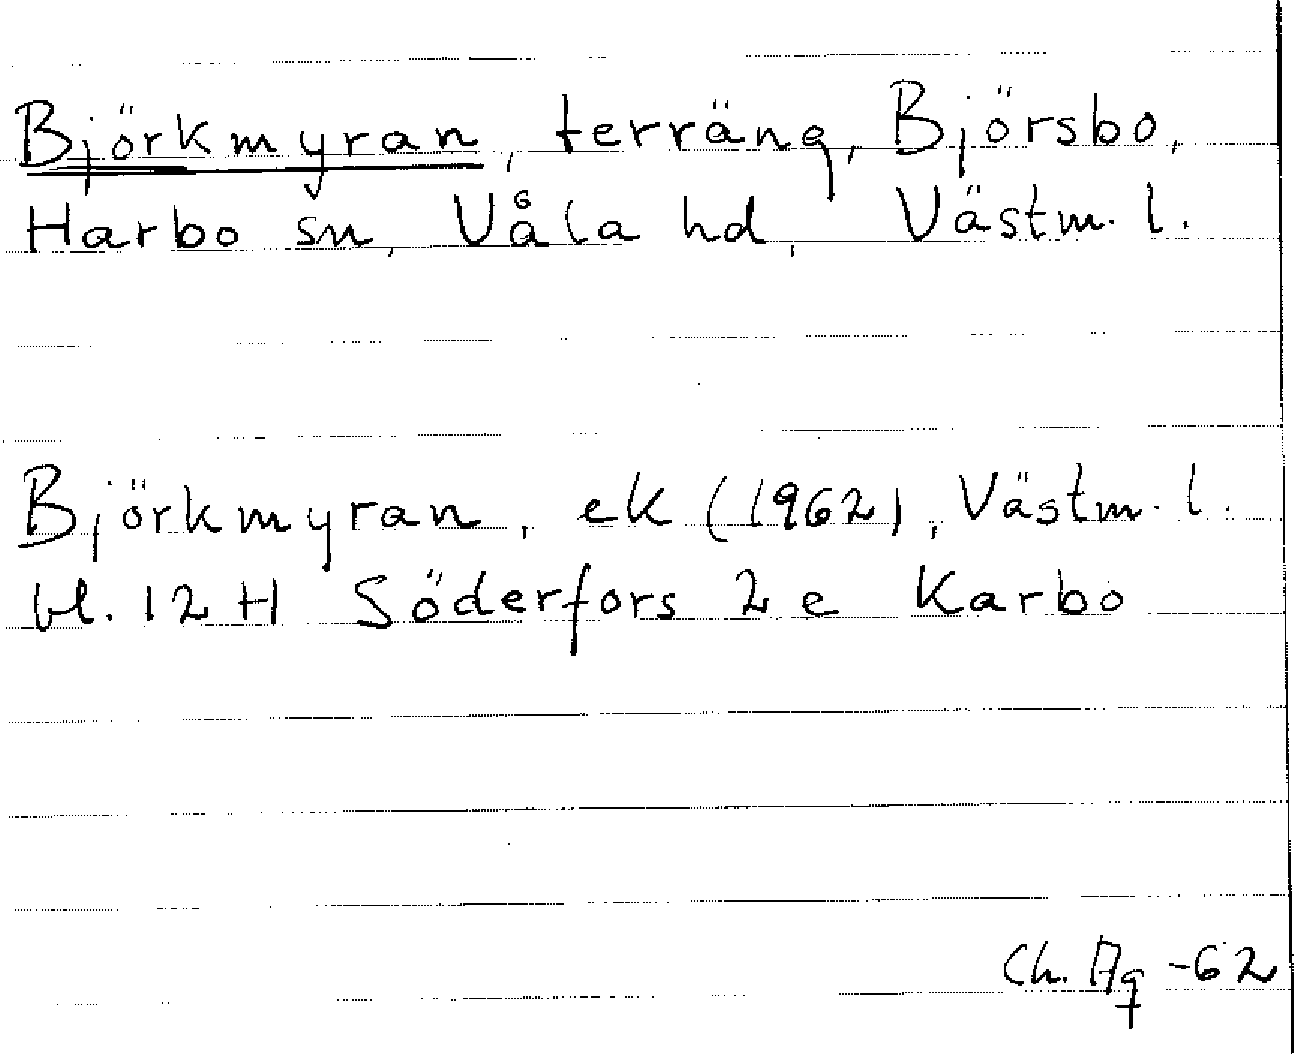 Björkmyran, terräng, Björsbo,
Harbo sn, Våla hd, Västm. l.
Björkmyran, ek (1962), Västm. l.
bl. 12 H Söderfors 2 e Karbo
Ch. Ag -62